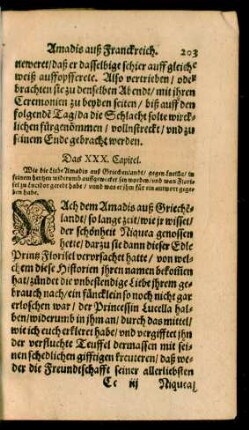 Amadis auß Franckreich. 203
neweret/daß er dasselbige schier auff gleiche
weiß auffopfferete. Also vertrieben/ oder
brachten sie zu denselben Abendt/ mit ihren
Ceremonien zu beyden seiten/ biß auff den
folgendẽ Tag/ da die Schlacht solte wirck-
lichen fürgenommen/ vollnstreckt/ vnd zu
seinem Ende gebracht werden.
Das XXX. Capitel.
Wie die Liebe Amadis auß Griechenlandt/ gegen Lucella/ in
seinem hertzen widerumb auffgewecket sey worden/ vnd was Flori-
sel zu Lucidor geredt habe/ vnnd was er ihm für ein antwort gege-
ben habe.
NAch dem Amadis auß Griechẽ-
landt/ so lange zeit/ wie jr wisset/
der schönheit Niquea genossen
hette/ darzu sie dann dieser Edle
Printz Florisel verorsachet hatte/ von wel-
chem diese Historien jhren namen bekom̃en
hat/ zündet die vnbestendige Liebe jhrem ge-
brauch nach/ ein füncklein so noch nicht gar
erloschen war/ der Princessin Lucella hal-
ben/ widerumb in jhm an/ durch das mittel/
wie ich euch erkleret habe/ vnd vergifftet jhn
der verfluchte Teuffel dermassen mit sei-
nen schedlichen gifftigen kreuteren/ daß we-
der die Freundtschafft seiner allerliebsten
Cc iij Niquea/